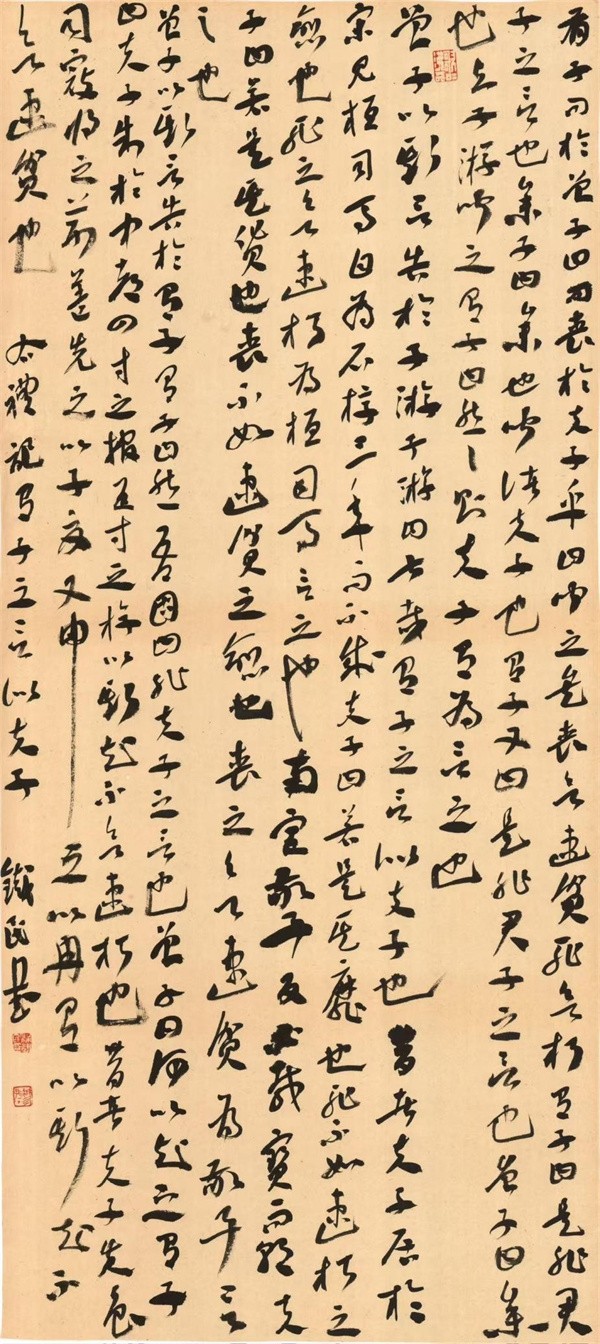 有子問於曾子曰問喪於夫子乎曰聞之矣喪欲速貧死欲朽有子曰是非君
子之言也參子曰參也聞諸夫子也有子又曰是非君子之言也曾子曰參
也與子游聞之有子曰然〻則夫子有為言之也
曾子以斯言告於子游子游曰甚哉有子之言似夫子也昔者夫子居於
宋見桓司馬自為石椁三年而不成夫子曰若是其靡也死不如速朽之
愈也死之欲速朽為桓司馬言之也南宮敬叔反必載寶而朝夫
子曰若是其貨也喪不如速貧之愈也喪之欲速貧為敬叔言
之也
曾子以斯言告於有子有子曰然吾固曰非夫子之言也曾子曰何以知之有子
曰夫子制於中都四寸之棺五寸之椁以斯知不欲速朽也昔者夫子失魯
司寇將之荊蓋先之以子夏又申之以冉有以斯知不
欲速貧也 右禮記有子之言似夫子 鐵民書